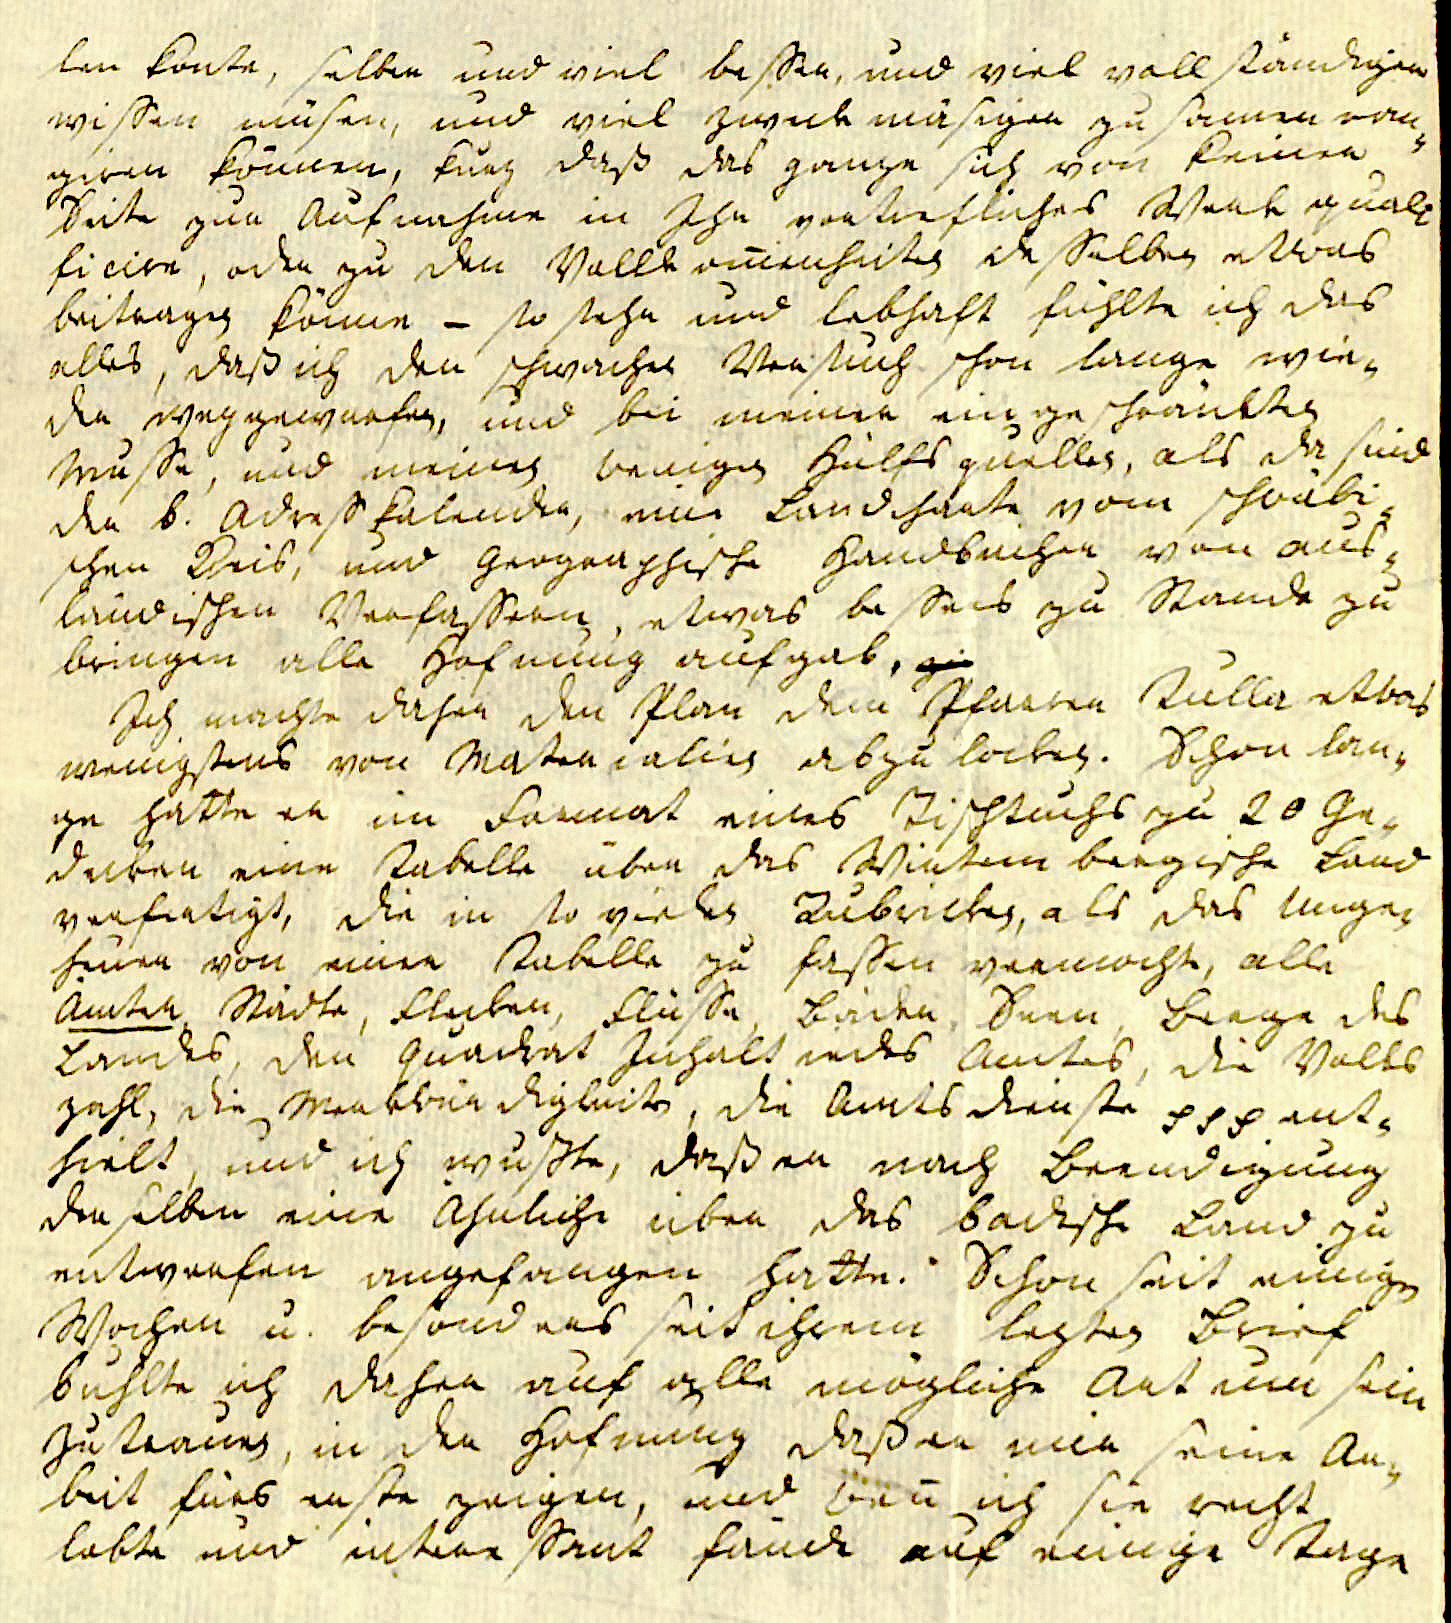 len konte, selber und viel besser, und viel vollständiger
wissen müsen, und viel zweckmäsiger zusamen ran-
giren können, kurz daß das ganze sich von keiner
Seite zur Aufnahme in Ihr vortrefliches Werk quali
ficire, oder zu den Vollkom̅enheiten desselben etwas
beitragen könne – so sehr und lebhaft fühlte ich das
alles, daß ich den schwachen Versuch schon lange wie-
der weggeworfen, und bei meiner eingeschränkten
Musse, und meinen wenigen Hülfsquellen, als da sind
der b. Adresskalender, eine Landcharte vom schwäbi-
schen Kreis, und Geographische Handbücher von aus-
ländischen Verfassern, etwas bessers zu Stande zu
bringen alle Hofnung aufgab.
Ich machte daher den Plan dem Pfarrer Tulla etwas
wenigstens von Materialien abzulocken. Schon lan-
ge hatte er im Format eines Tischtuchs zu 20 Ge-
decken eine Tabelle über das Wirtembergische Land
verfertigt, die in so vielen Rubricken, als das Unge-
heuer von einer Tabelle zu fassen vermochte, alle
Ämter, Städte, Flecken, Flüsse, Bäder, Seen, Berge des
Landes, den Quadrat Inhalt jedes Amtes, die Volks
zahl, die Merkwürdigkeiten, die Amtsdienste ppp ent-
hielt, und ich wußte, daß er nach Beendigung
derselben eine Ähnliche über das badische Land zu
entwerfen angefangen hatte. Schon seit einigen
Wochen u. besonders seit ihrem lezten Brief
buhlte ich daher auf alle mögliche Art um sein
Zutrauen, in der Hofnung daß er mir seine Ar-
beit fürs erste zeigen, und wen̅ ich sie recht
lobte und interessant fände auf einige Tage